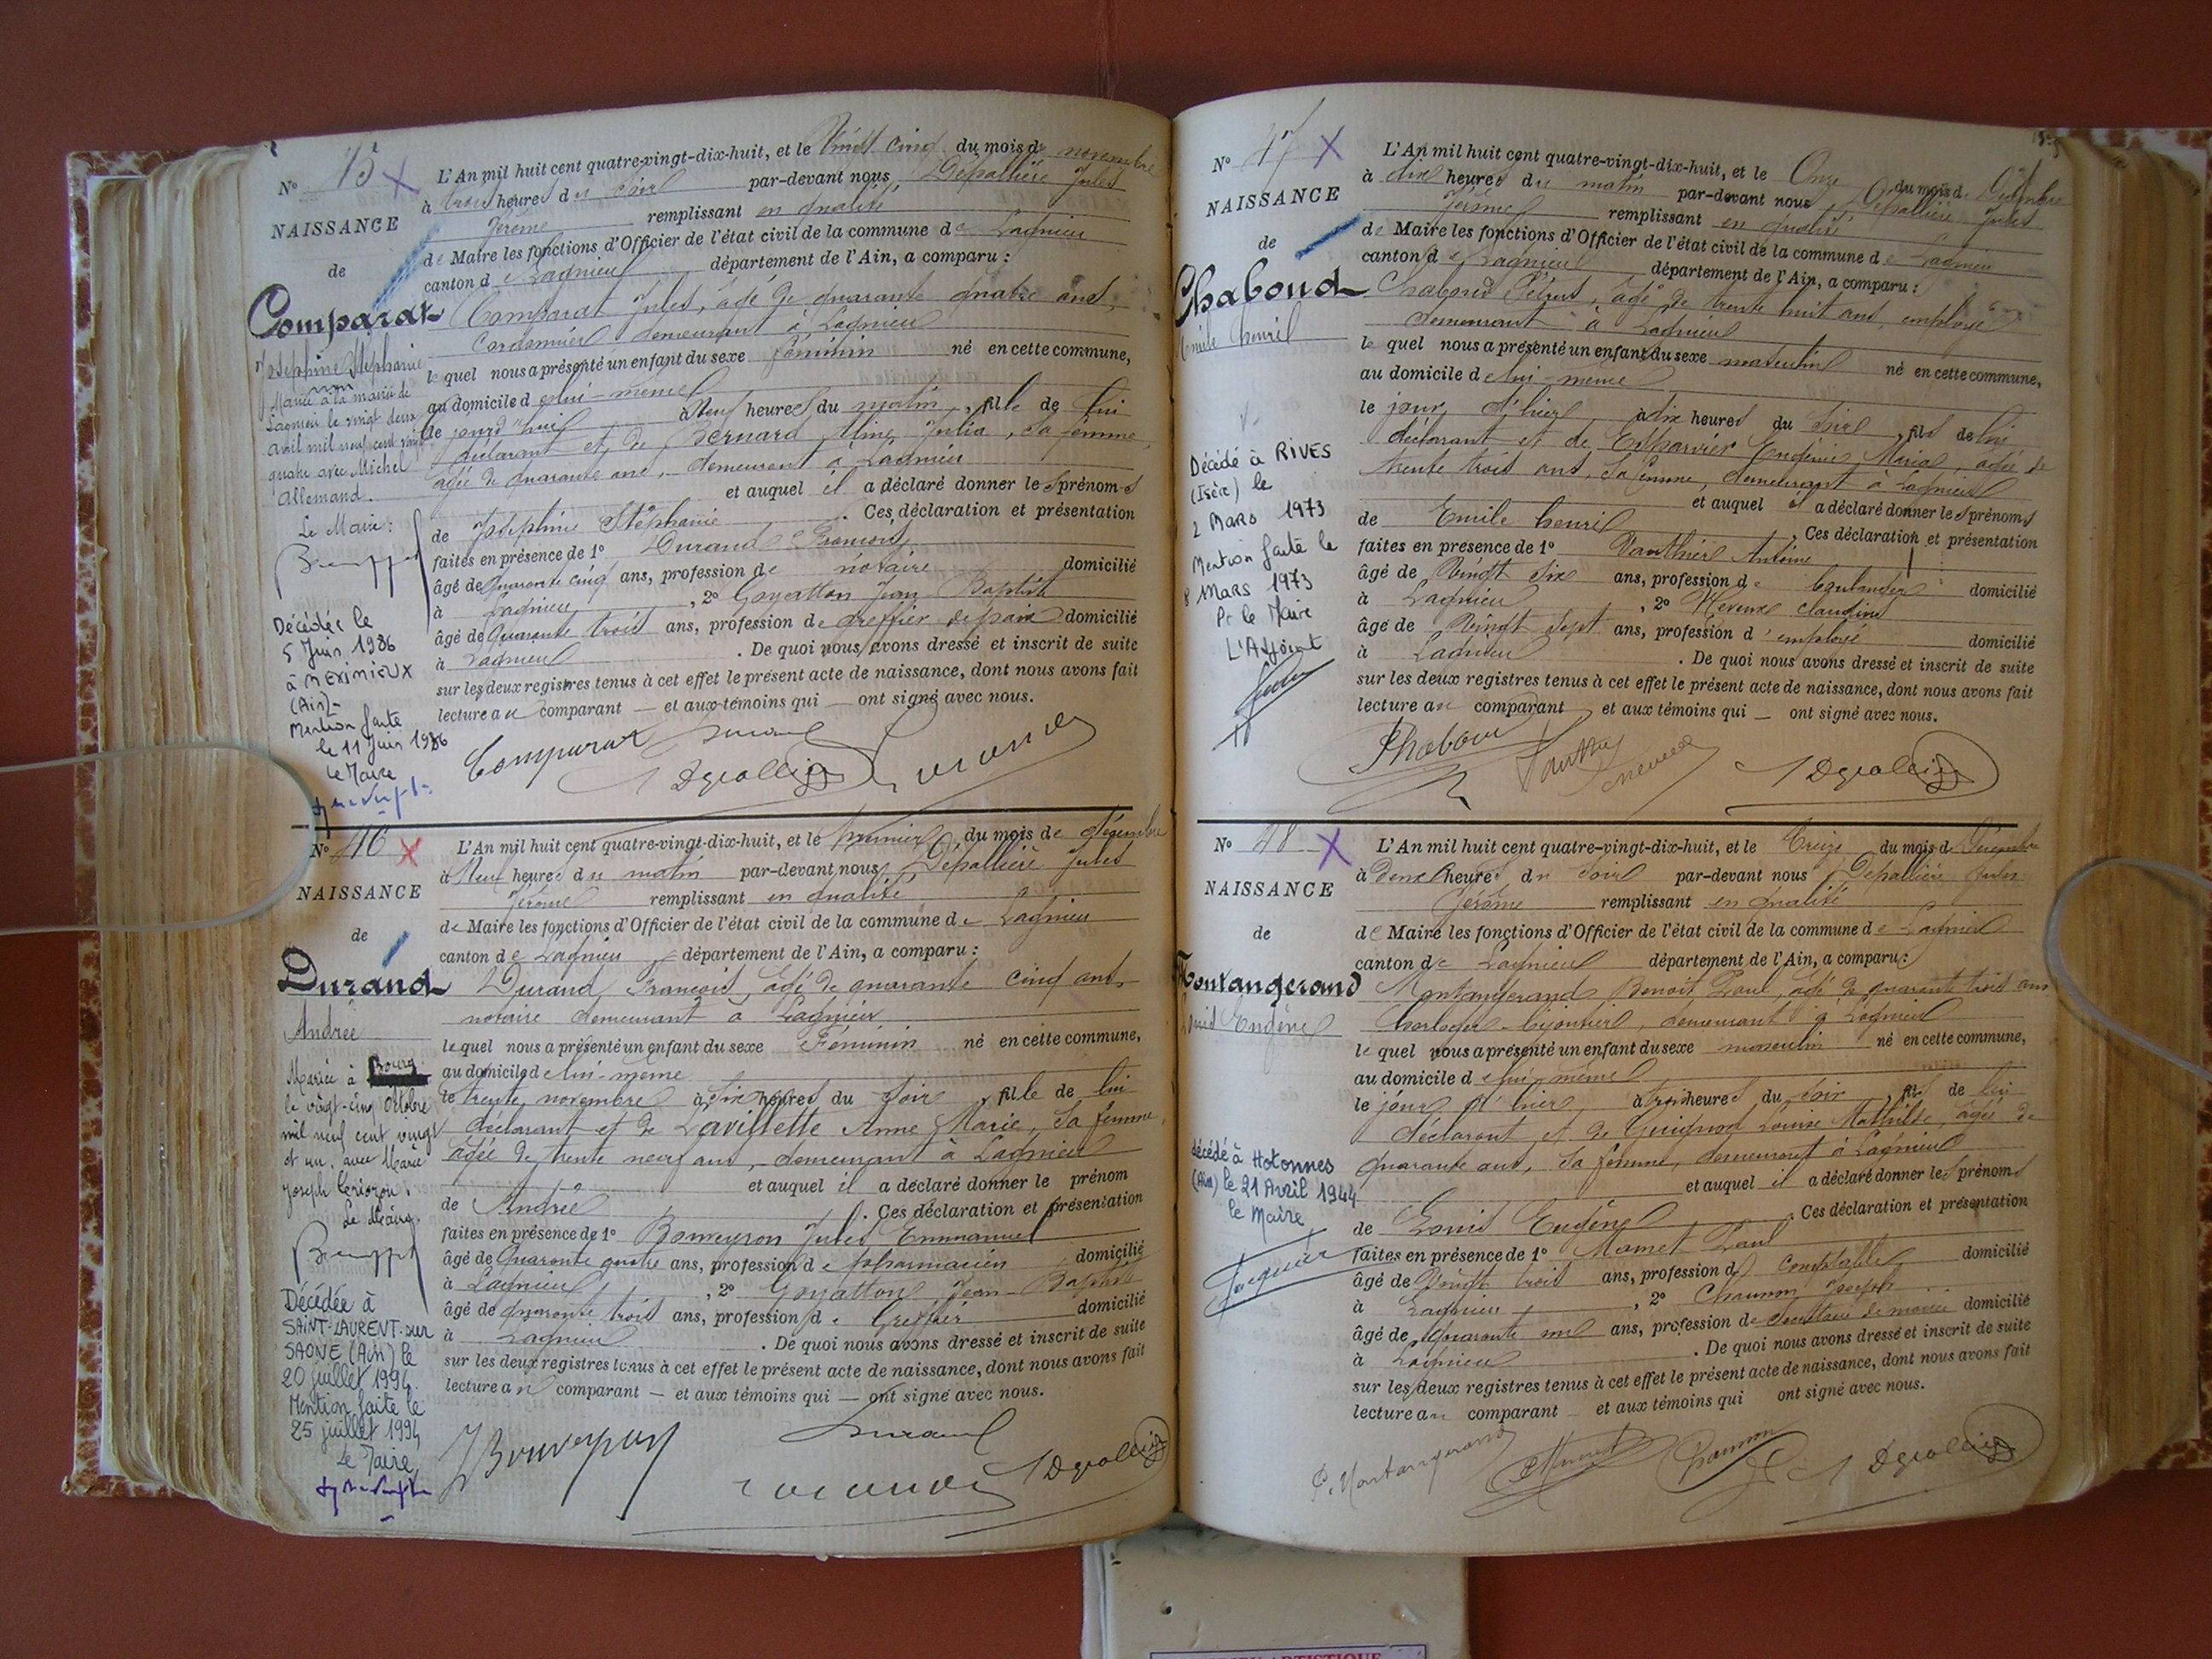 N° 45 X
NAISSANCE
de
Comparat
Joséphine Stéphanie
non
Mariée à la mairie de
Lagnieu le vingt deux
avril mil neuf cent vingt
quatre avec Michel
Allemand.
Le Maire :
Décédée le
5 Juin 1986
à MEXIMIEUX
(Ain)-
Mention faite
le 11 Juin 1986
Le Maire
L'An mil huit cent quatre-vingt-dix-huit, et le Vingt cinq du mois de novembre
à trois heures du soir par-devant nous Depallière Jules
Jérôme remplissant en qualité
de Maire les fonctions d'Officier de l'état civil de la commune de Lagnieu
canton de Lagnieu département de l'Ain, a comparu :
Comparat Jules, âgé de quarante quatre ans,
Cordonnier demeurant à Lagnieu
lequel nous a présenté un enfant du sexe féminin né en cette commune,
au domicile de lui-même
le jourd'hui à Neuf heures du matin, fille de lui
déclarant et de Bernard Aline Julia, sa femme,
âgée de quarante ans, demeurant à Lagnieu
et auquel il a déclaré donner les prénoms
de Joséphine Stéphanie . Ces déclaration et présentation
faites en présence de 1° Durand François
âgé de quarante cinq ans, profession de notaire domicilié
à Lagnieu , 2° Goyatton Jean Baptiste
âgé de Quarante trois ans, profession de greffier de paix domicilié
à Lagnieu . De quoi nous avons dressé et inscrit de suite
sur les deux registres tenus à cet effet le présent acte de naissance, dont nous avons fait
lecture au comparant — et aux témoins qui — ont signé avec nous.
Comparat Durand
N° 46 X
NAISSANCE
de
Durand
Andrée
Mariée à Bourg
le vingt-cinq Octobre
mil neuf cent vingt
et un, avec Marie
Joseph
Le Maire
Décédée à
SAINT-LAURENT-sur
SAONE (Ain) le
20 juillet 1994
Mention faite le
25 juillet 1994
Le Maire
L'An mil huit cent quatre-vingt-dix-huit, et le premier du mois de décembre
à Neuf heures du matin par-devant nous Depallière Jules
Jérôme remplissant en qualité
de Maire les fonctions d'Officier de l'état civil de la commune de Lagnieu
canton de Lagnieu département de l'Ain, a comparu :
Durand François, âgé de quarante cinq ans,
notaire demeurant à Lagnieu
lequel nous a présenté un enfant du sexe Féminin né en cette commune,
au domicile de lui-même
le trente novembre à six heures du soir, fille de lui
déclarant et de Lavillette Anne Marie, sa femme,
âgée de trente neuf ans, demeurant à Lagnieu
et auquel il a déclaré donner le prénom
de Andrée . Ces déclaration et présentation
faites en présence de 1° Jules Emmanuel
âgé de Quarante quatre ans, profession de pharmacien domicilié
à Lagnieu , 2° Goyatton Jean-Baptiste
âgé de quarante trois ans, profession de Greffier domicilié
à Lagnieu . De quoi nous avons dressé et inscrit de suite
sur les deux registres tenus à cet effet le présent acte de naissance, dont nous avons fait
lecture au comparant — et aux témoins qui — ont signé avec nous.
Durand
N° 47 X
NAISSANCE
de
Chaboud
Emile henri
Décédé à RIVES
(Isère) le
2 MARS 1973
Mention faite le
8 MARS 1973
Pr le Maire
L'Adjoint
L'An mil huit cent quatre-vingt-dix-huit, et le Onze du mois de Décembre
à dix heures du matin par-devant nous Depallière Jules
Jérôme remplissant en qualité
de Maire les fonctions d'Officier de l'état civil de la commune de Lagnieu
canton de Lagnieu département de l'Ain, a comparu :
Chaboud, âgé de trente huit ans, employé
demeurant à Lagnieu
lequel nous a présenté un enfant du sexe masculin né en cette commune,
au domicile de lui-même
le jour d'hier à six heures du soir, fils de lui
déclarant et de Eugénie Maria, âgée de
trente trois ans, sa femme, demeurant à Lagnieu
et auquel il a déclaré donner les prénoms
de Emile henri . Ces déclaration et présentation
faites en présence de 1° Vauthier Antoine
âgé de Vingt six ans, profession de boulanger domicilié
à Lagnieu , 2° Claudius
âgé de Vingt sept ans, profession d'employé domicilié
à Lagnieu . De quoi nous avons dressé et inscrit de suite
sur les deux registres tenus à cet effet le présent acte de naissance, dont nous avons fait
lecture au comparant et aux témoins qui — ont signé avec nous.
Chaboud
N° 48 X
NAISSANCE
de
Montangerand
Louis Eugène
décédé à Hotonnes
(Ain) le 21 Avril 1944
Le Maire
L'An mil huit cent quatre-vingt-dix-huit, et le Treize du mois de Décembre
à Deux heures du soir par-devant nous Depallière Jules
Jérôme remplissant en qualité
de Maire les fonctions d'Officier de l'état civil de la commune de Lagnieu
canton de Lagnieu département de l'Ain, a comparu :
Montangerand Benoît Paul, âgé de quarante trois ans
horloger-bijoutier, demeurant à Lagnieu
lequel nous a présenté un enfant du sexe masculin né en cette commune,
au domicile de lui même
le jour d'hier à trois heures du soir, fils de lui
déclarant et de Louise Mathilde, âgée de
quarante ans, sa femme, demeurant à Lagnieu
et auquel il a déclaré donner les prénoms
de Louis Eugène . Ces déclaration et présentation
faites en présence de 1° Mamet Paul
âgé de Vingt trois ans, profession de comptable domicilié
à Lagnieu , 2° Chaumon Joseph
âgé de quarante un ans, profession de secrétaire de mairie domicilié
à Lagnieu . De quoi nous avons dressé et inscrit de suite
sur les deux registres tenus à cet effet le présent acte de naissance, dont nous avons fait
lecture au comparant et aux témoins qui ont signé avec nous.
P. Montangerand